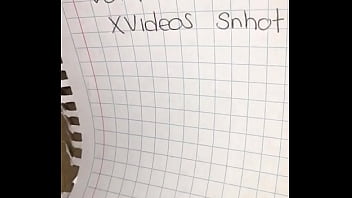 XVideos Snhot